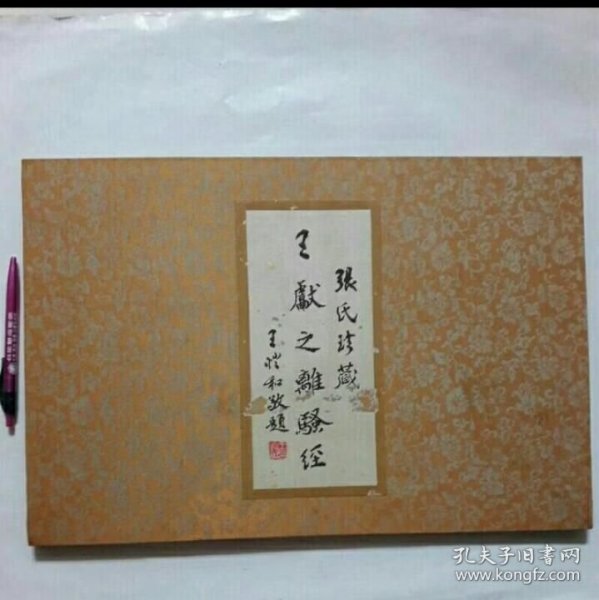 張氏珍藏
王獻之離騷經
王愷和敬題
孔夫子旧书网
www.kongfz.com